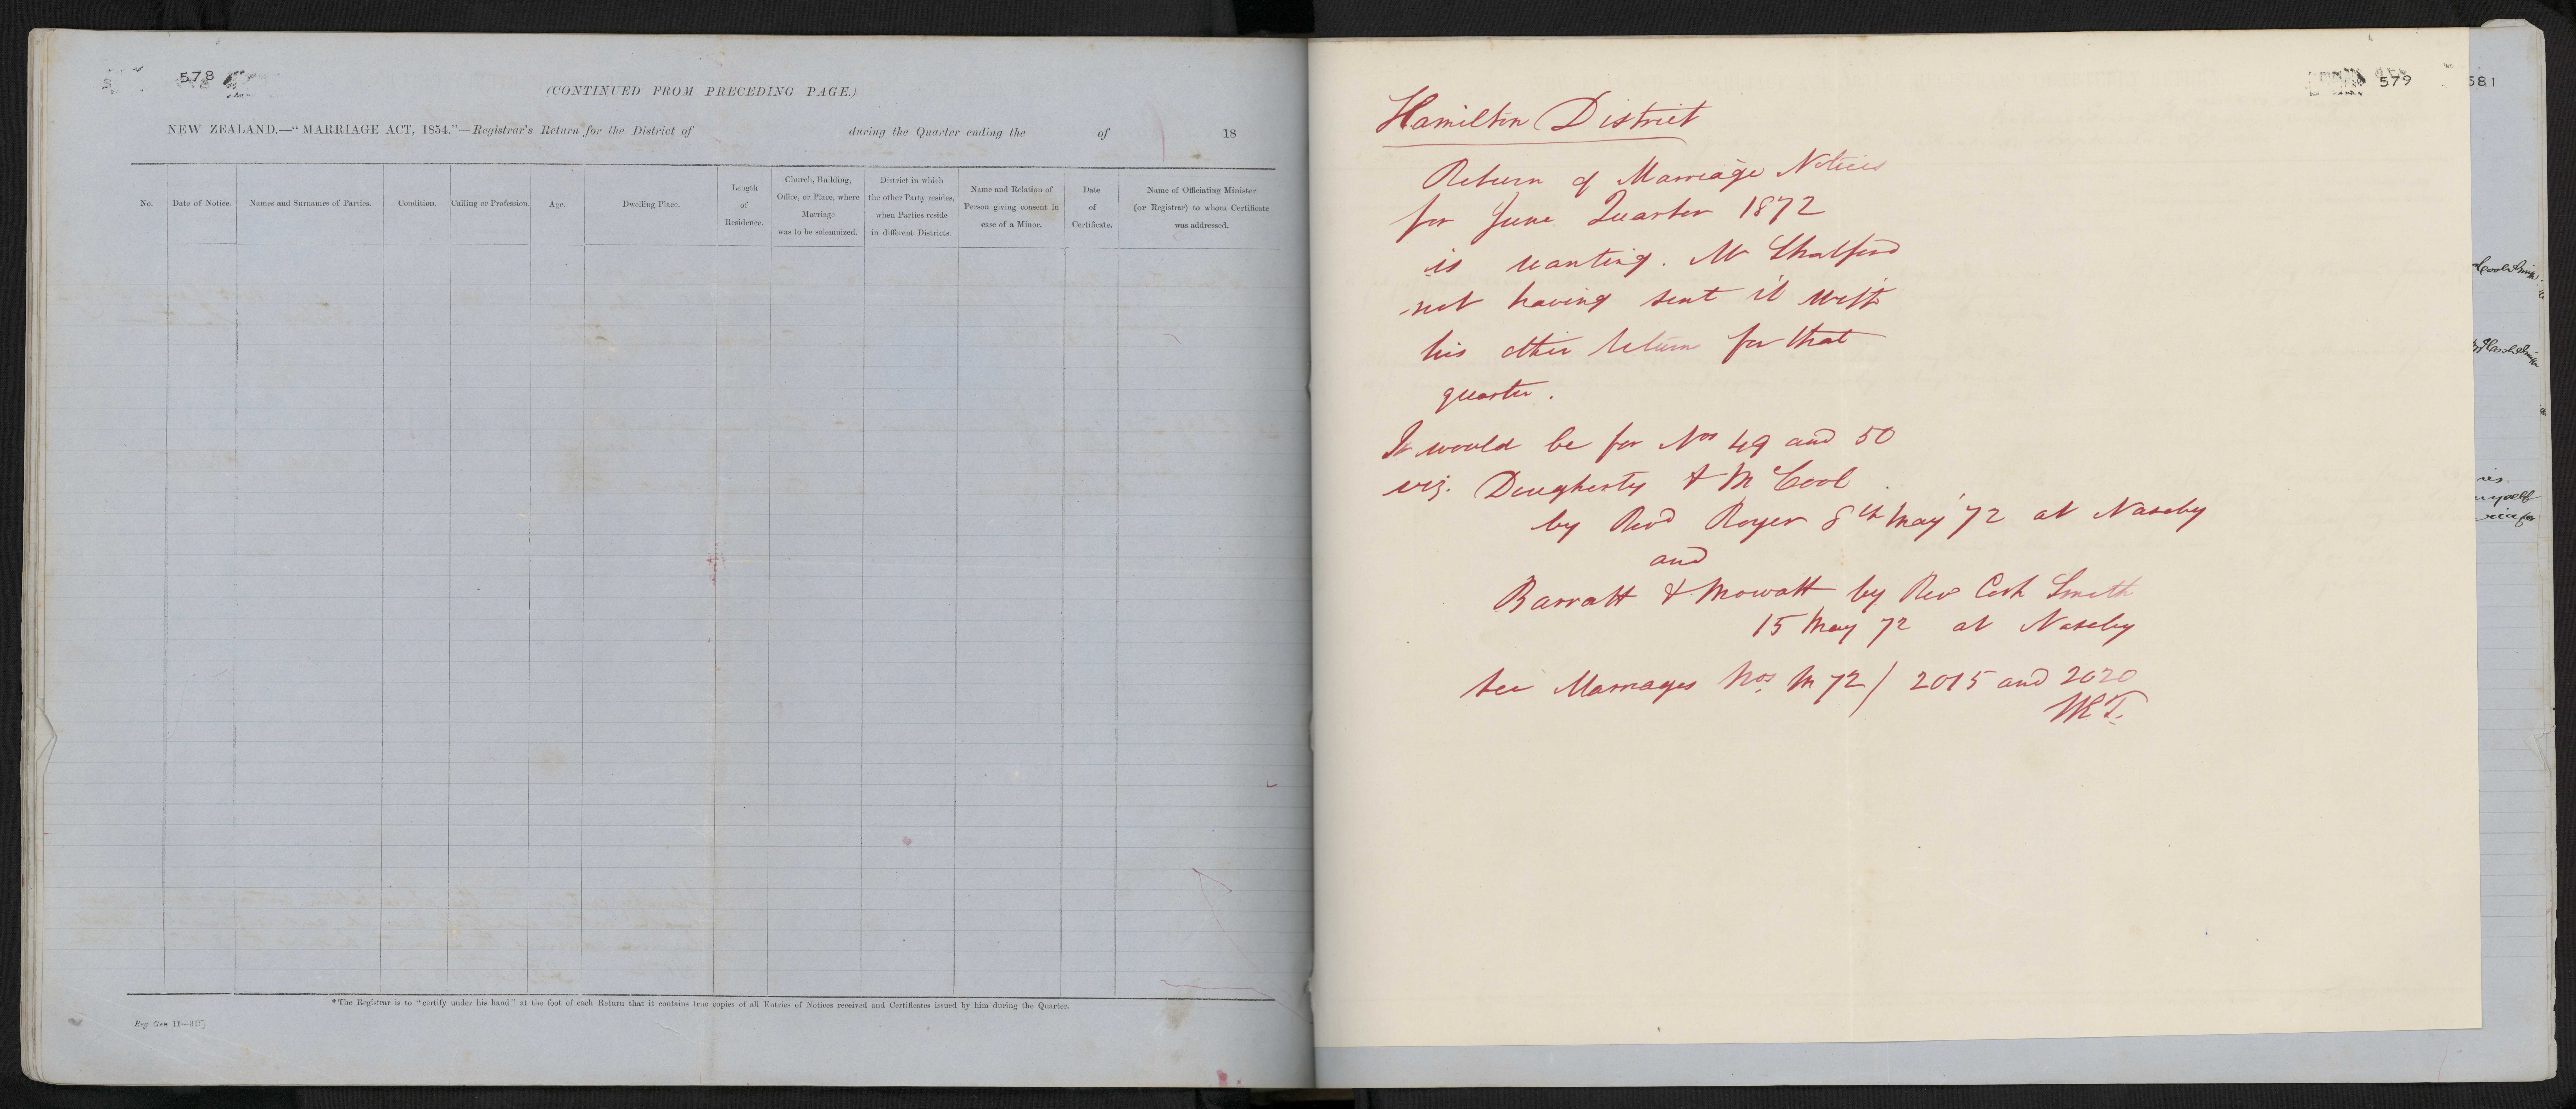 578
(CONTINUED FROM PRECEDING PAGE.)
NEW ZEALAND.—"MARRIAGE ACT, 1854."—Registrar's Return for the District of during the Quarter ending the of 18
No.
Date of Notice.
Names and Surnames of Parties.
Condition.
Calling or Profession.
Age.
Dwelling Place.
Length
of
Residence.
Church, Building,
Office, or Place, where
Marriage
was to be solemnized.
District in which
the other Party resides,
when Parties reside
in different Districts.
Name and Relation of
Person giving consent in
case of a Minor.
Date
of
Certificate.
Name of Officiating Minister
(or Registrar) to whom Certificate
was addressed.
*The Registrar is to "certify under his hand" at the foot of each Return that it contains true copies of all Entries of Notices received and Certificates issued by him during the Quarter.
Reg. Gen 11—31]
579
Hamilton District
Return of Marriage Notices
for June Quarter 1872
is wanting. Mr
not having sent it with
his other return for that
quarter.
It would be for Nos 49 and 50
viz. Dougherty & McCool
by Revd Royer 8th May '72 at Naseby
and
Barratt & Mowatt by Rev Smith
15 May 72 at Naseby
See Marriages Nos M 72/2015 and 2020
581
myself